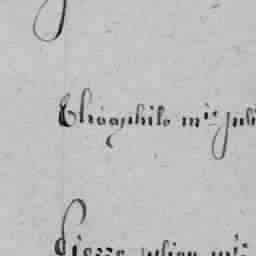 Théophile mre Juli
Pierre Julien mre